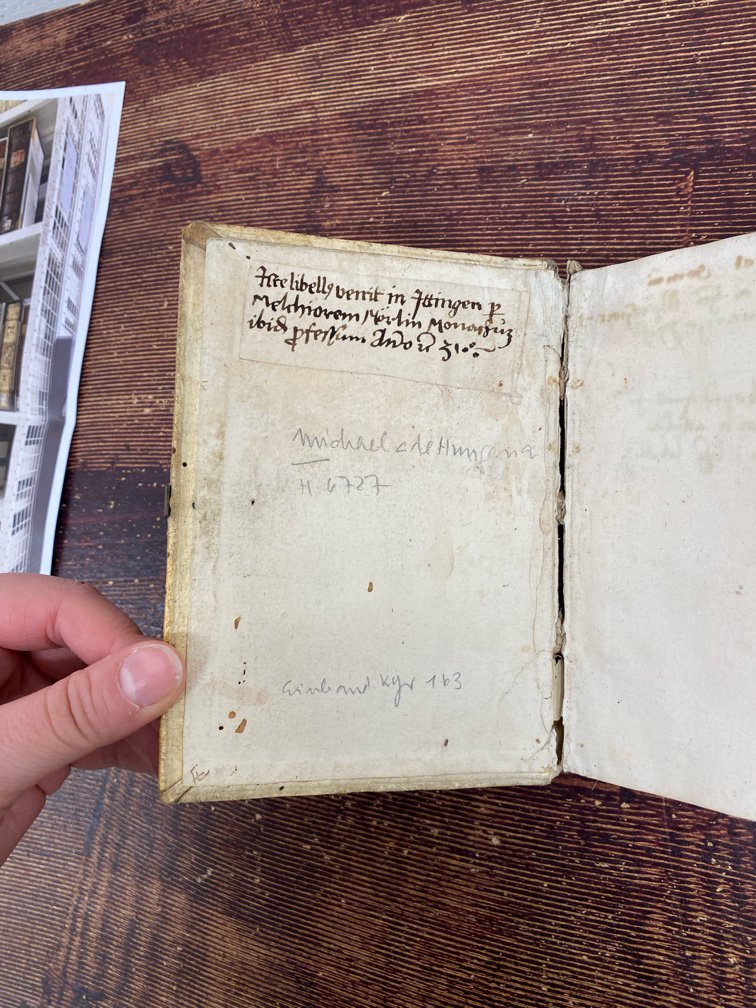 Iste libellꝯ venit in Ittingen ꝑ
Melchiorem Mörlin Monachū
ibidē ꝓfessum Año
Michael de Hungaria
H 6727
Einband Kyr 163